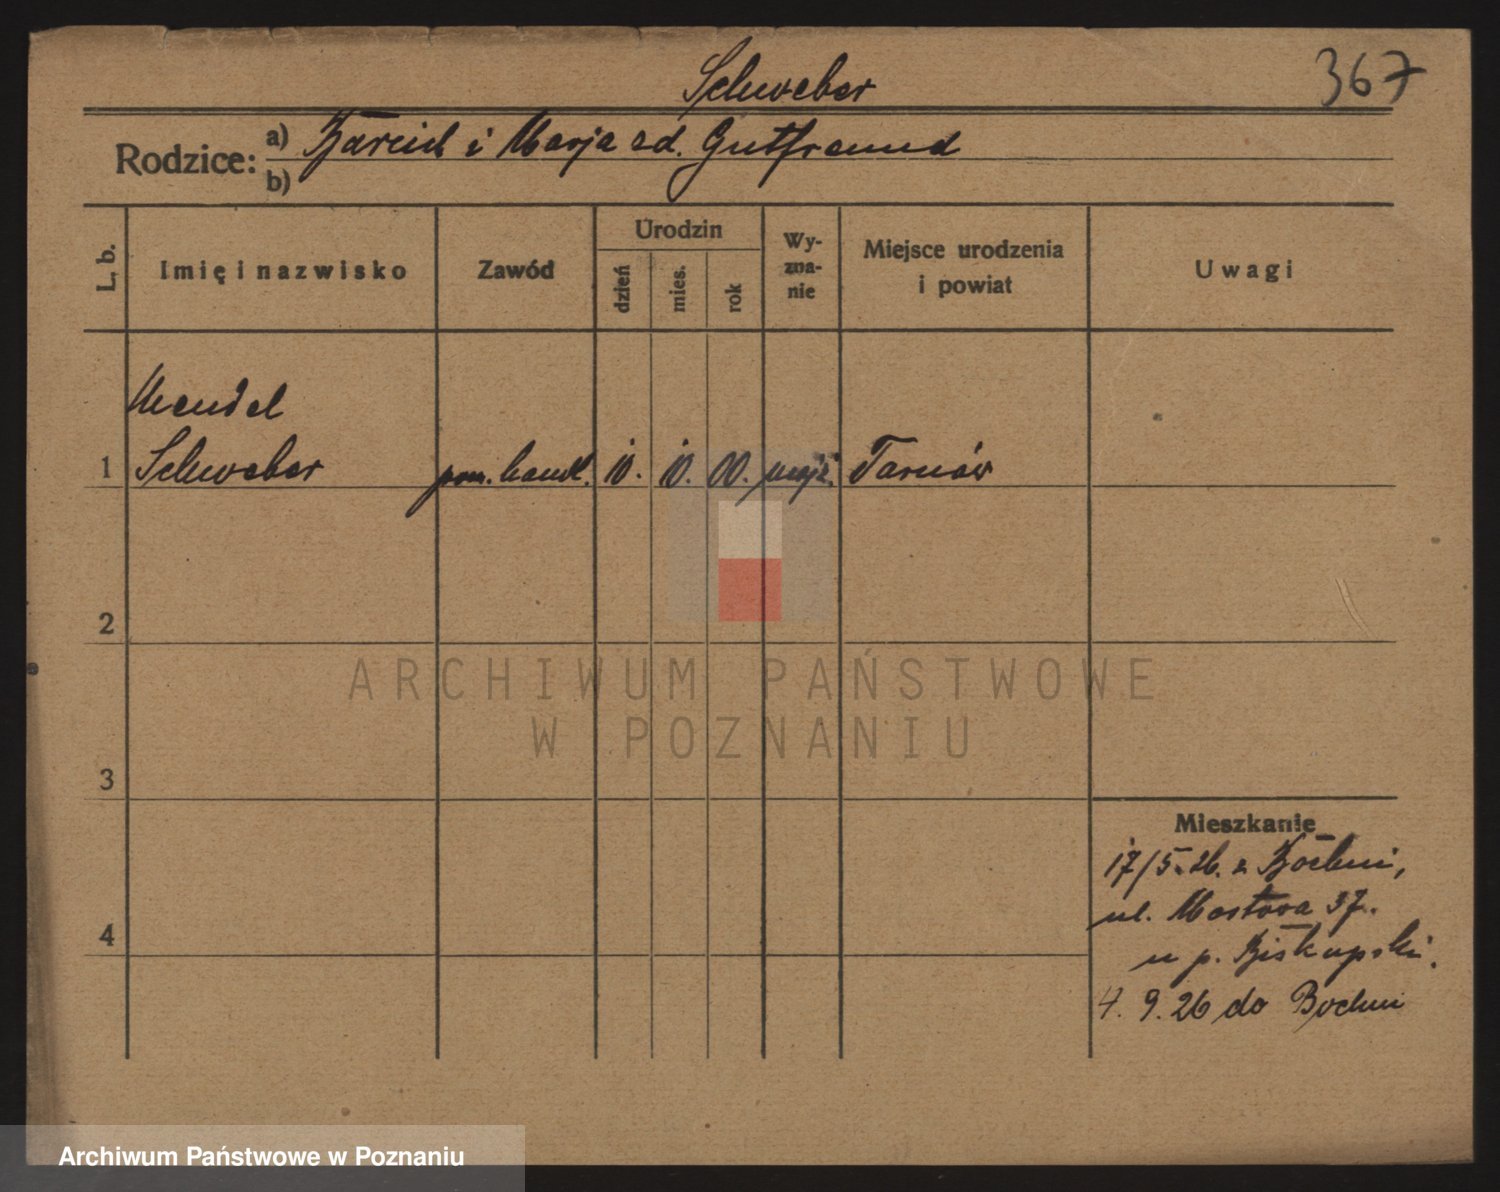 Schweber
367
Rodzice:
a) Baruch i Marja zd. Gutfreund
b)
L. b.
Imię i nazwisko
Zawód
Urodzin
dzień
mies.
rok
Wy-
zna-
nie
Miejsce urodzenia
i powiat
Uwagi
Mendel
1 Schweber pom. handl. 10. 10. 00. mojż. Tarnów
2
3
4
Mieszkanie
17/5.26. z Bochni,
ul. Mostowa 37.
u p. Biskupski.
4. 9. 26 do Bochni
ARCHIWUM PAŃSTWOWE
W POZNANIU
Archiwum Państwowe w Poznaniu